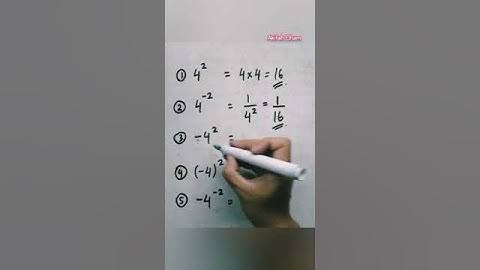 Akitah Cham
① 4² = 4×4 = 16
② 4⁻² = 1/4² = 1/16
③ -4² =
④ (-4)²
⑤ -4⁻² =